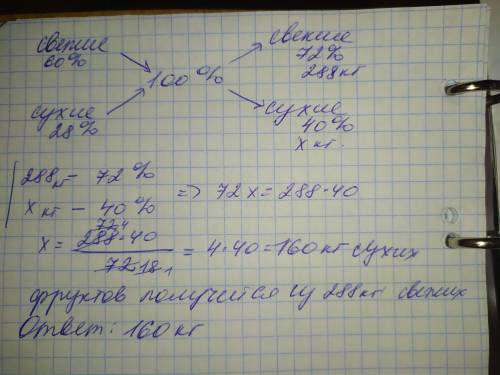 свежие
60%
сухие
28%
100%
свежие
72%
288кг
сухие
40%
х кг.
288кг – 72%
х кг – 40%
=> 72х = 288·40
х = 288·40 / 72 = 4·40 = 160 кг сухих
фруктов получится из 288кг свежих
Ответ: 160 кг